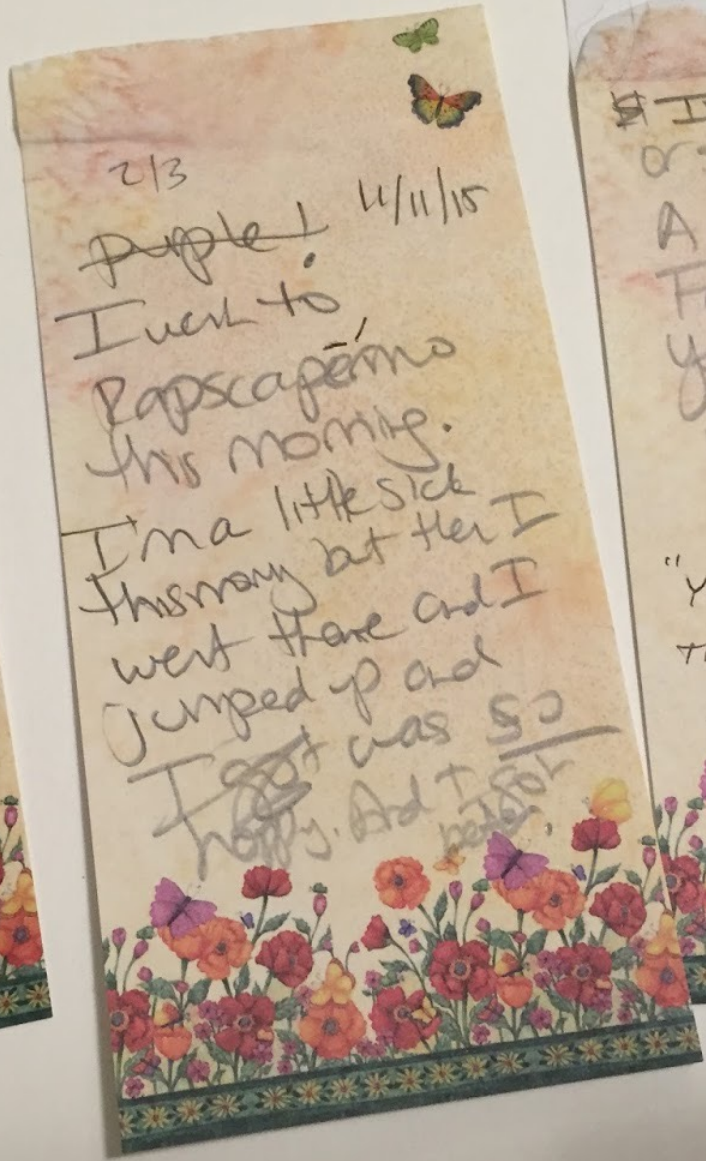 2/3
purple! 11/11/15
I went to
Rapscapérmo
this morning.
I'm a little sick
this morny but then I
went there and I
jumped up and
I got was so
happy. And I got
better.
$ I
or
A
F
y
"Y
T